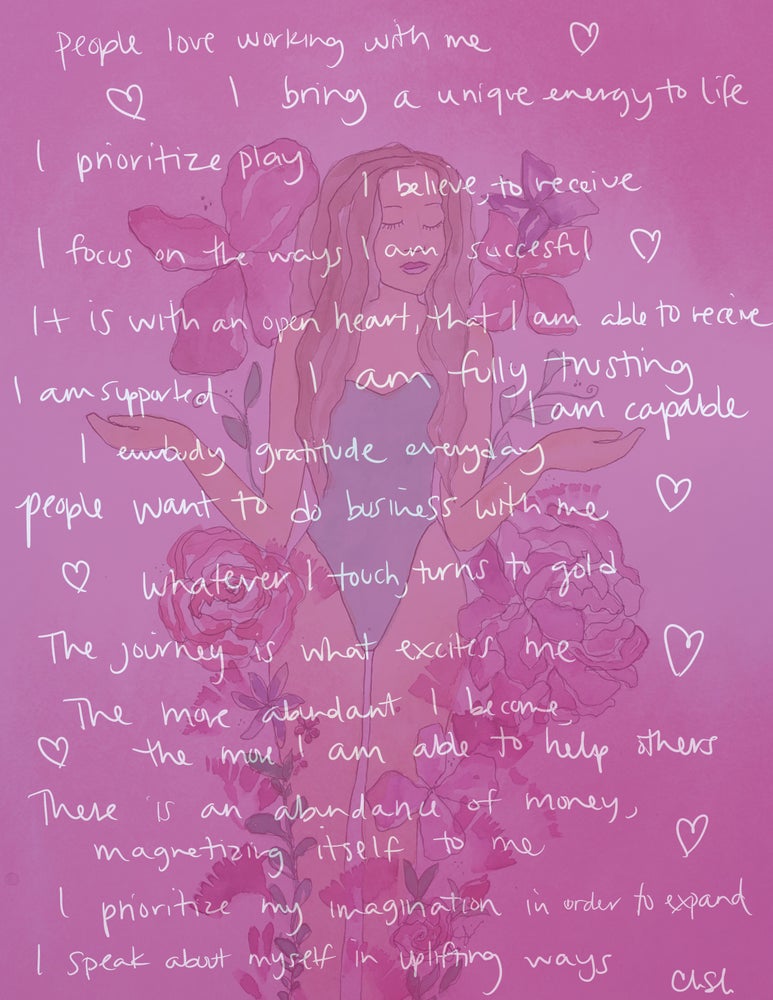 people love working with me
I bring a unique energy to life
I prioritize play
I believe, to receive
I focus on the ways I am succesful
It is with an open heart, that I am able to receive
I am fully trusting
I am supported
I am capable
I embody gratitude everyday
people want to do business with me
whatever I touch, turns to gold
The journey is what excites me
The more abundant I become,
the more I am able to help others
There is an abundance of money,
magnetizing itself to me
I prioritize my imagination in order to expand
I speak about myself in uplifting ways